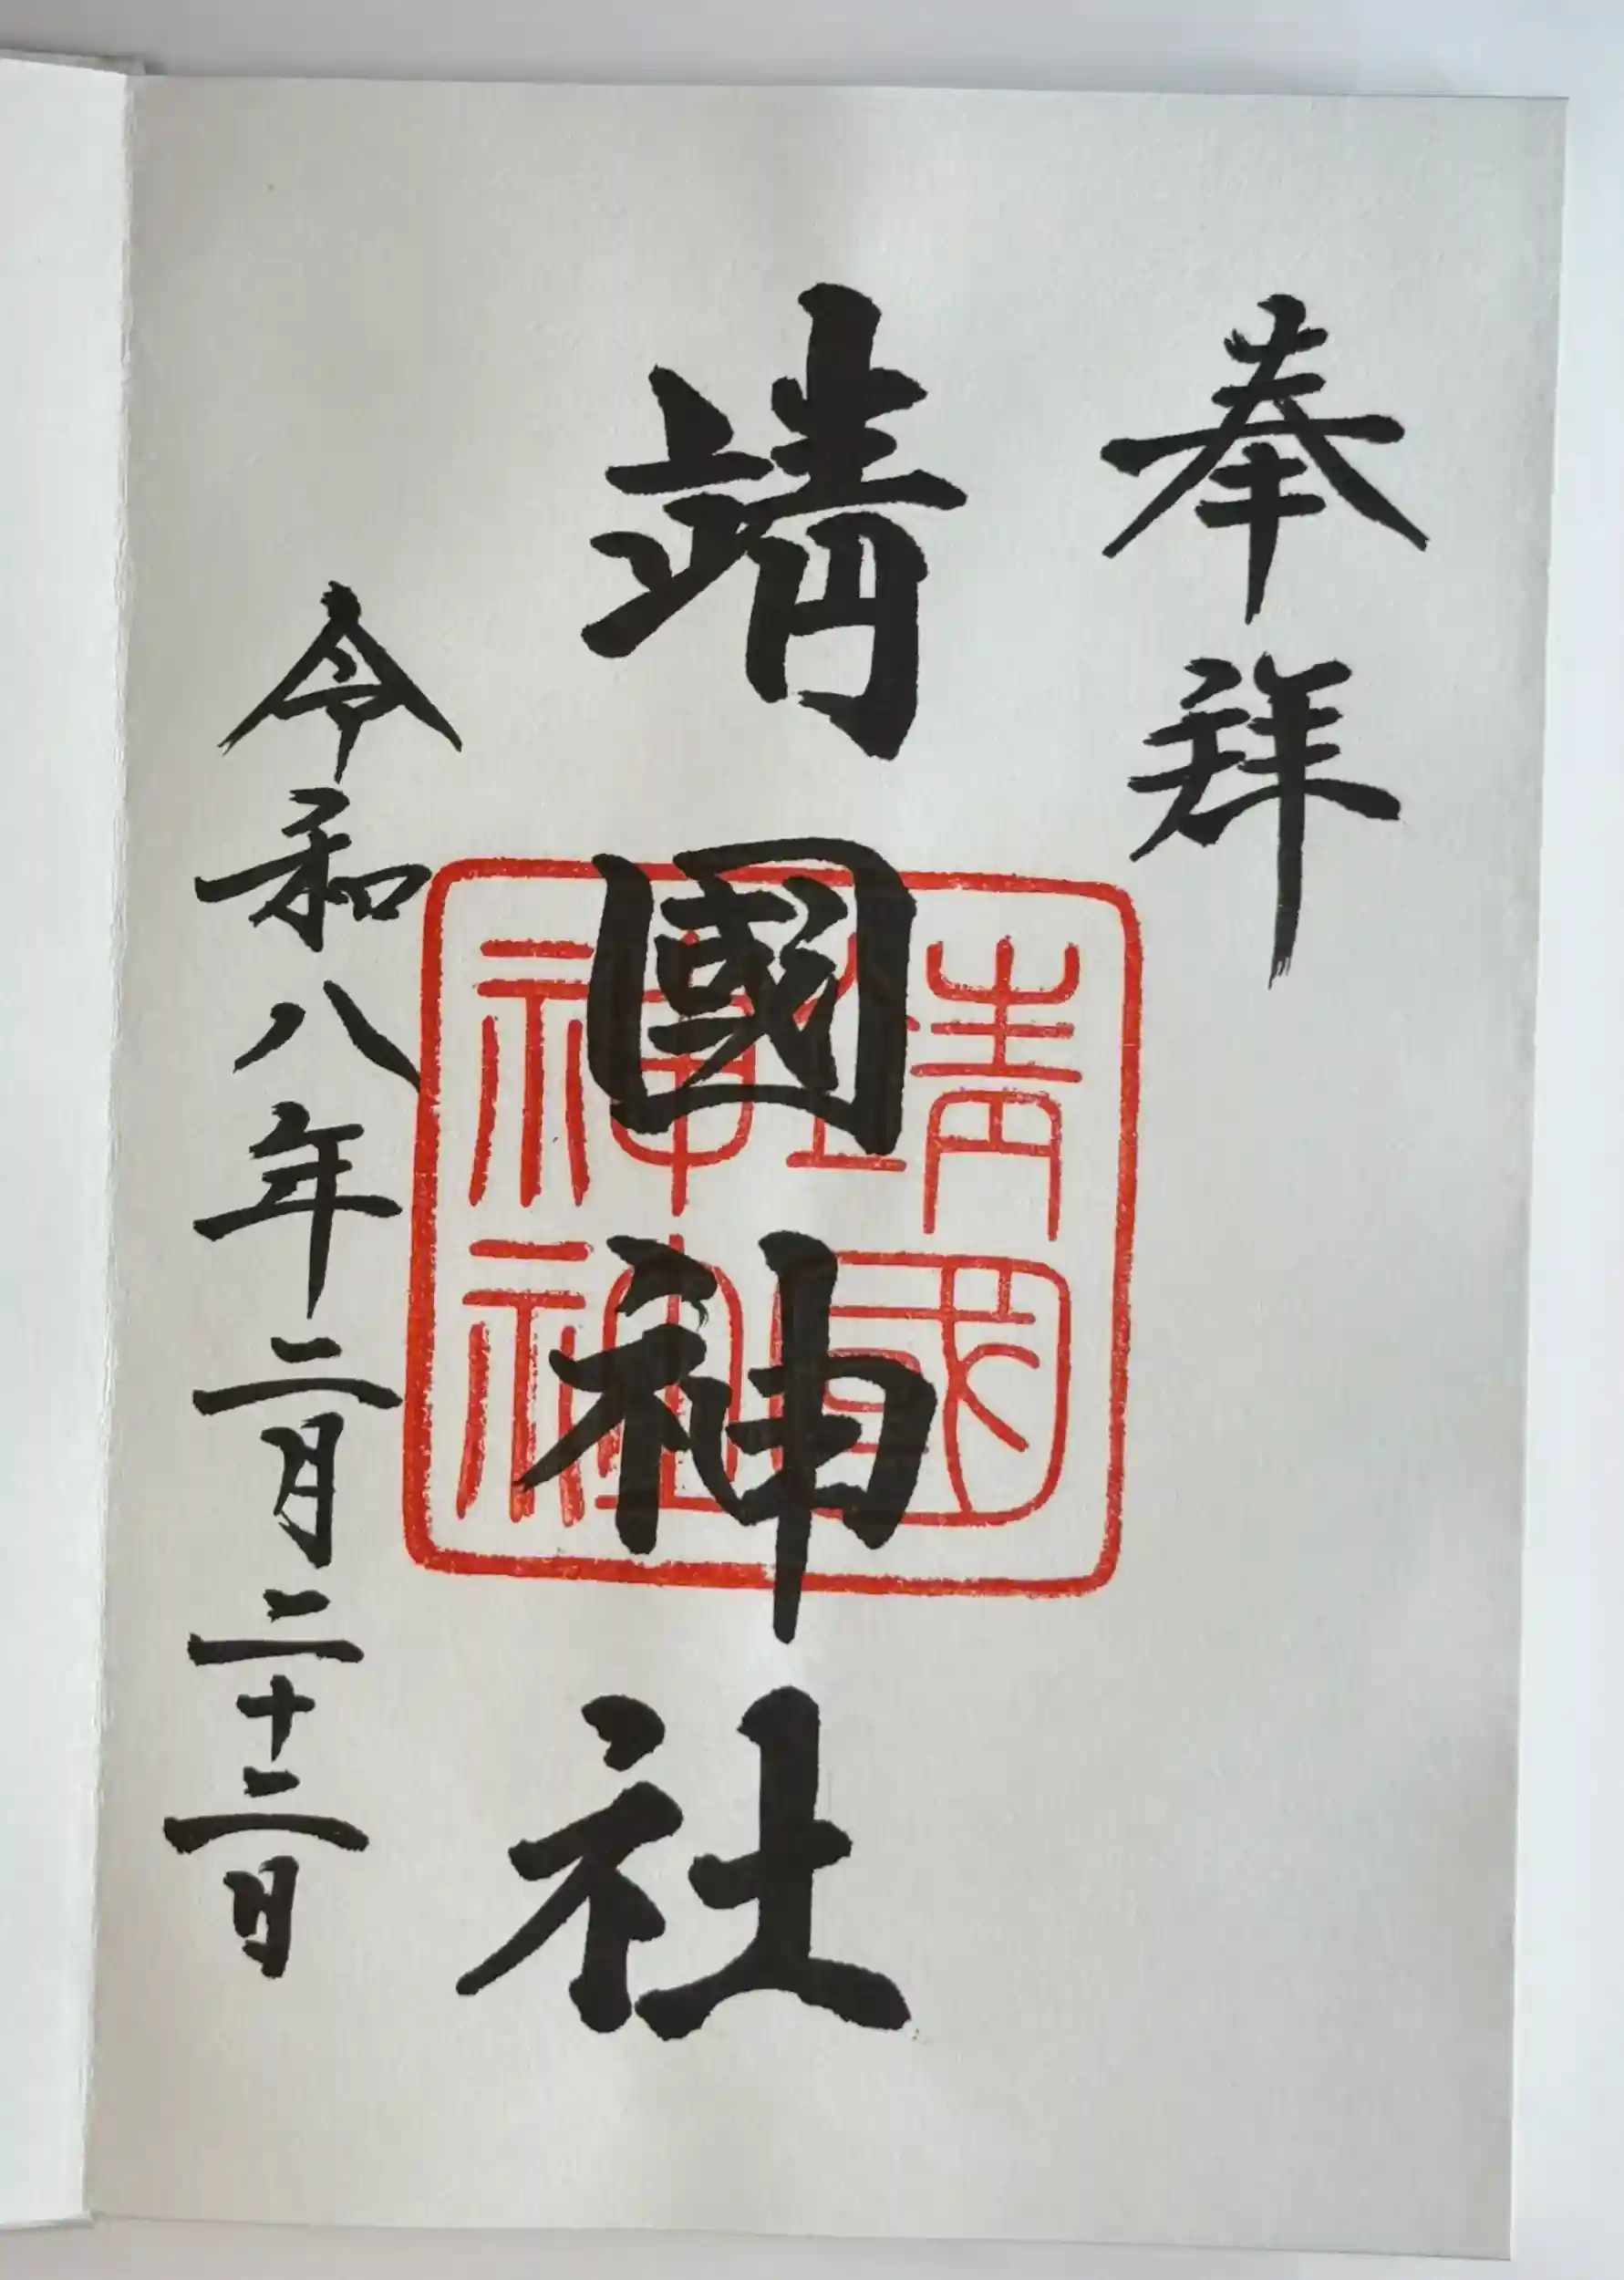 奉拜
靖國神社
靖國神社
令和八年二月二十二日